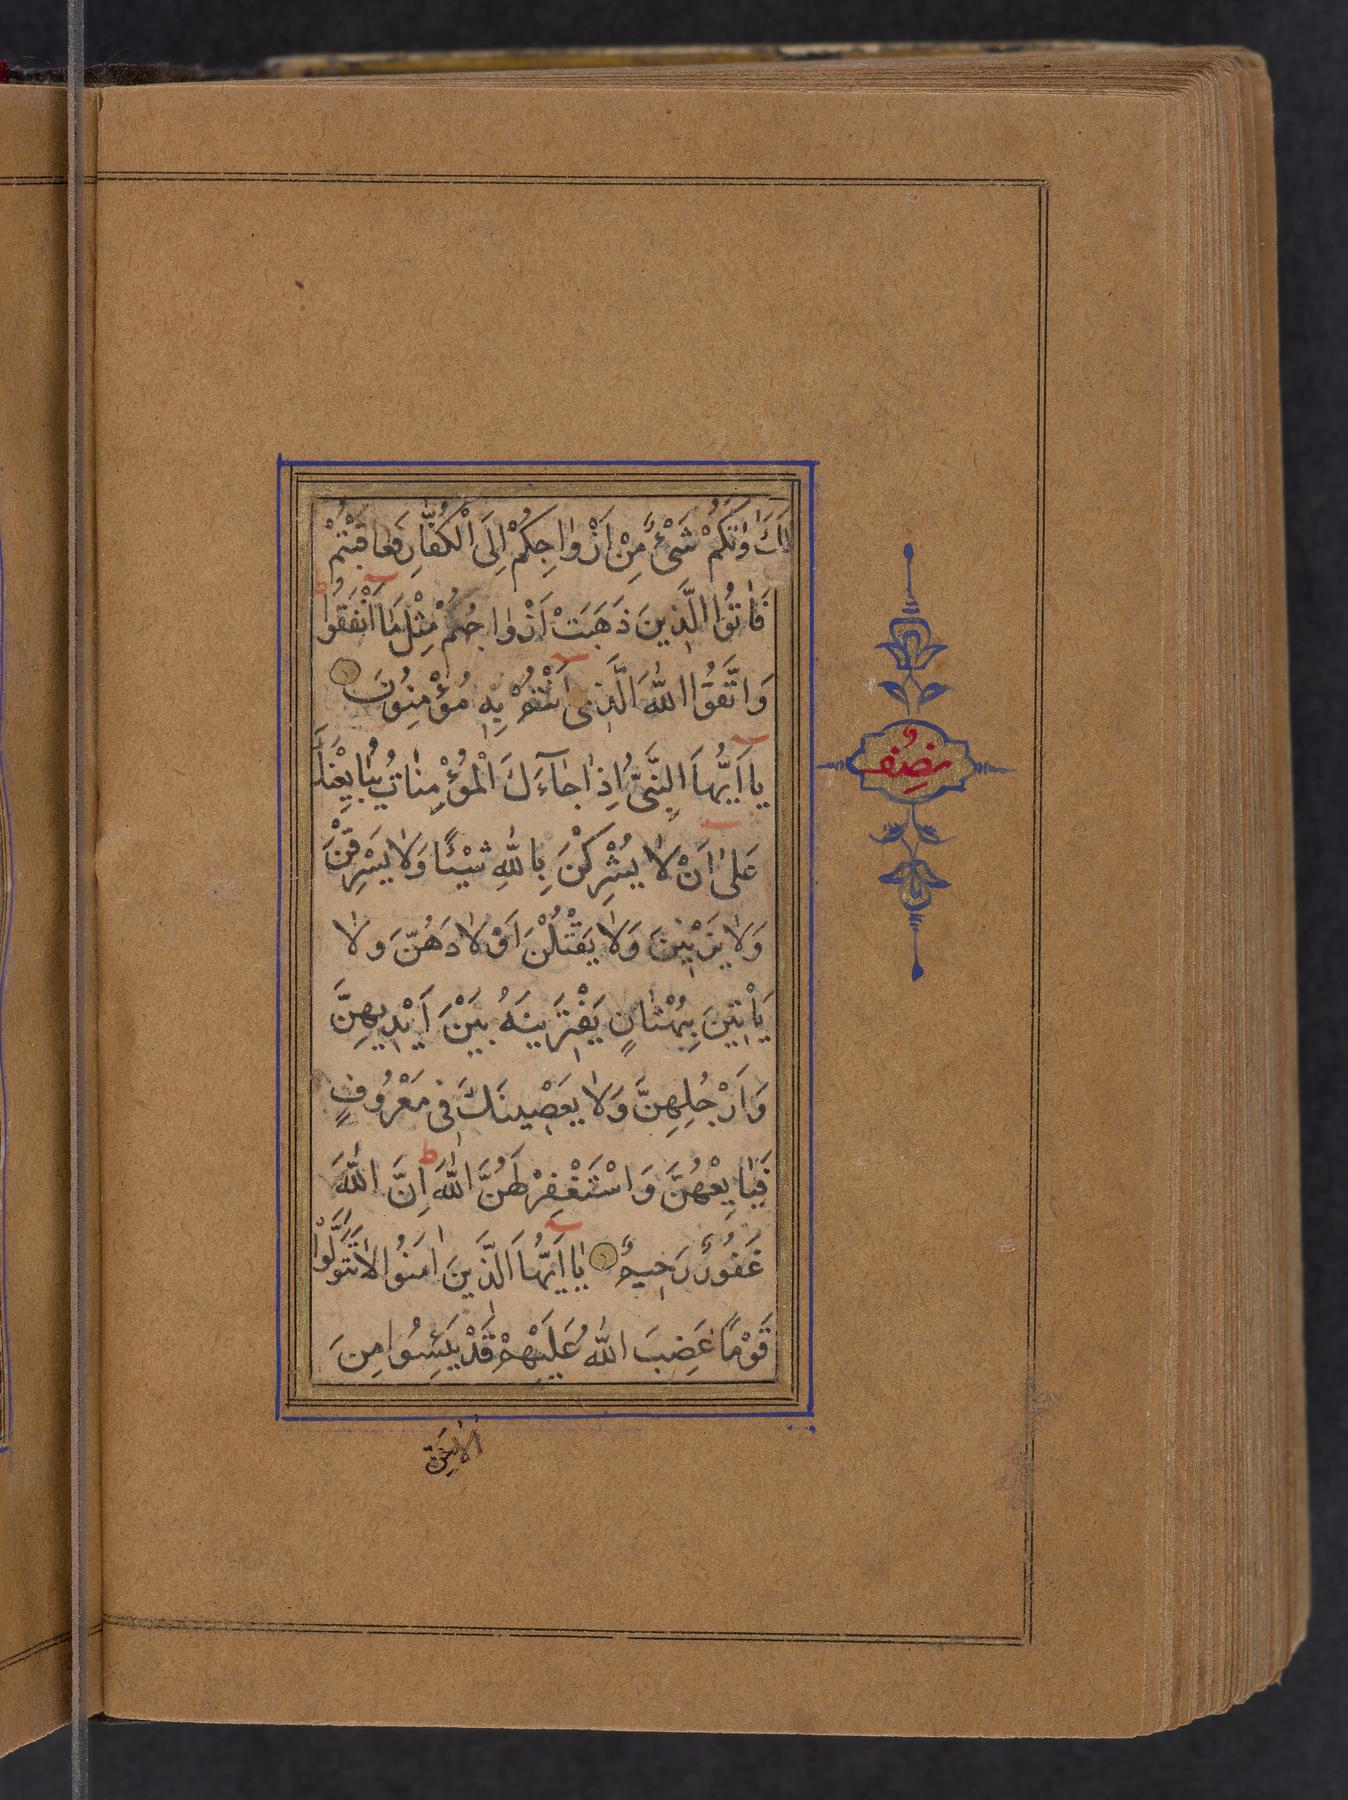 فَاتَكُمْ شَىْءٌ مِنْ اَزْوٰاجِكُمْ اِلَى الْكُفّٰارِ فَعٰاقَبْتُمْ
فَاٰتُوا الَّذينَ ذَهَبَتْ اَزْوٰاجُهُمْ مِثْلَ مٰا اَنْفَقُوا
وَاتَّقُوا اللّٰهَ الَّذى اَنْتُمْ بِهِ مُؤْمِنُونَ
يٰا اَيُّهَا النَّبِىُّ اِذٰا جٰاۤءَكَ الْمُؤْمِنٰاتُ يُبٰايِعْنَكَ
عَلىٰ اَنْ لٰا يُشْرِكْنَ بِاللّٰهِ شَيْـًٔا وَلٰا يَسْرِقْنَ
وَلٰا يَزْنينَ وَلٰا يَقْتُلْنَ اَوْلٰادَهُنَّ وَلٰا
يَأْتينَ بِبُهْتٰانٍ يَفْتَرينَهُ بَيْنَ اَيْديهِنَّ
وَاَرْجُلِهِنَّ وَلٰا يَعْصينَكَ فى مَعْرُوفٍ
فَبٰايِعْهُنَّ وَاسْتَغْفِرْ لَهُنَّ اللّٰهَ ط اِنَّ اللّٰهَ
غَفُورٌ رَحيمٌ يٰا اَيُّهَا الَّذينَ اٰمَنُوا لٰا تَتَوَلَّوْا
قَوْمًا غَضِبَ اللّٰهُ عَلَيْهِمْ قَدْ يَئِسُوا مِنَ
الْاٰخِرَةِ
نِصْفٌ